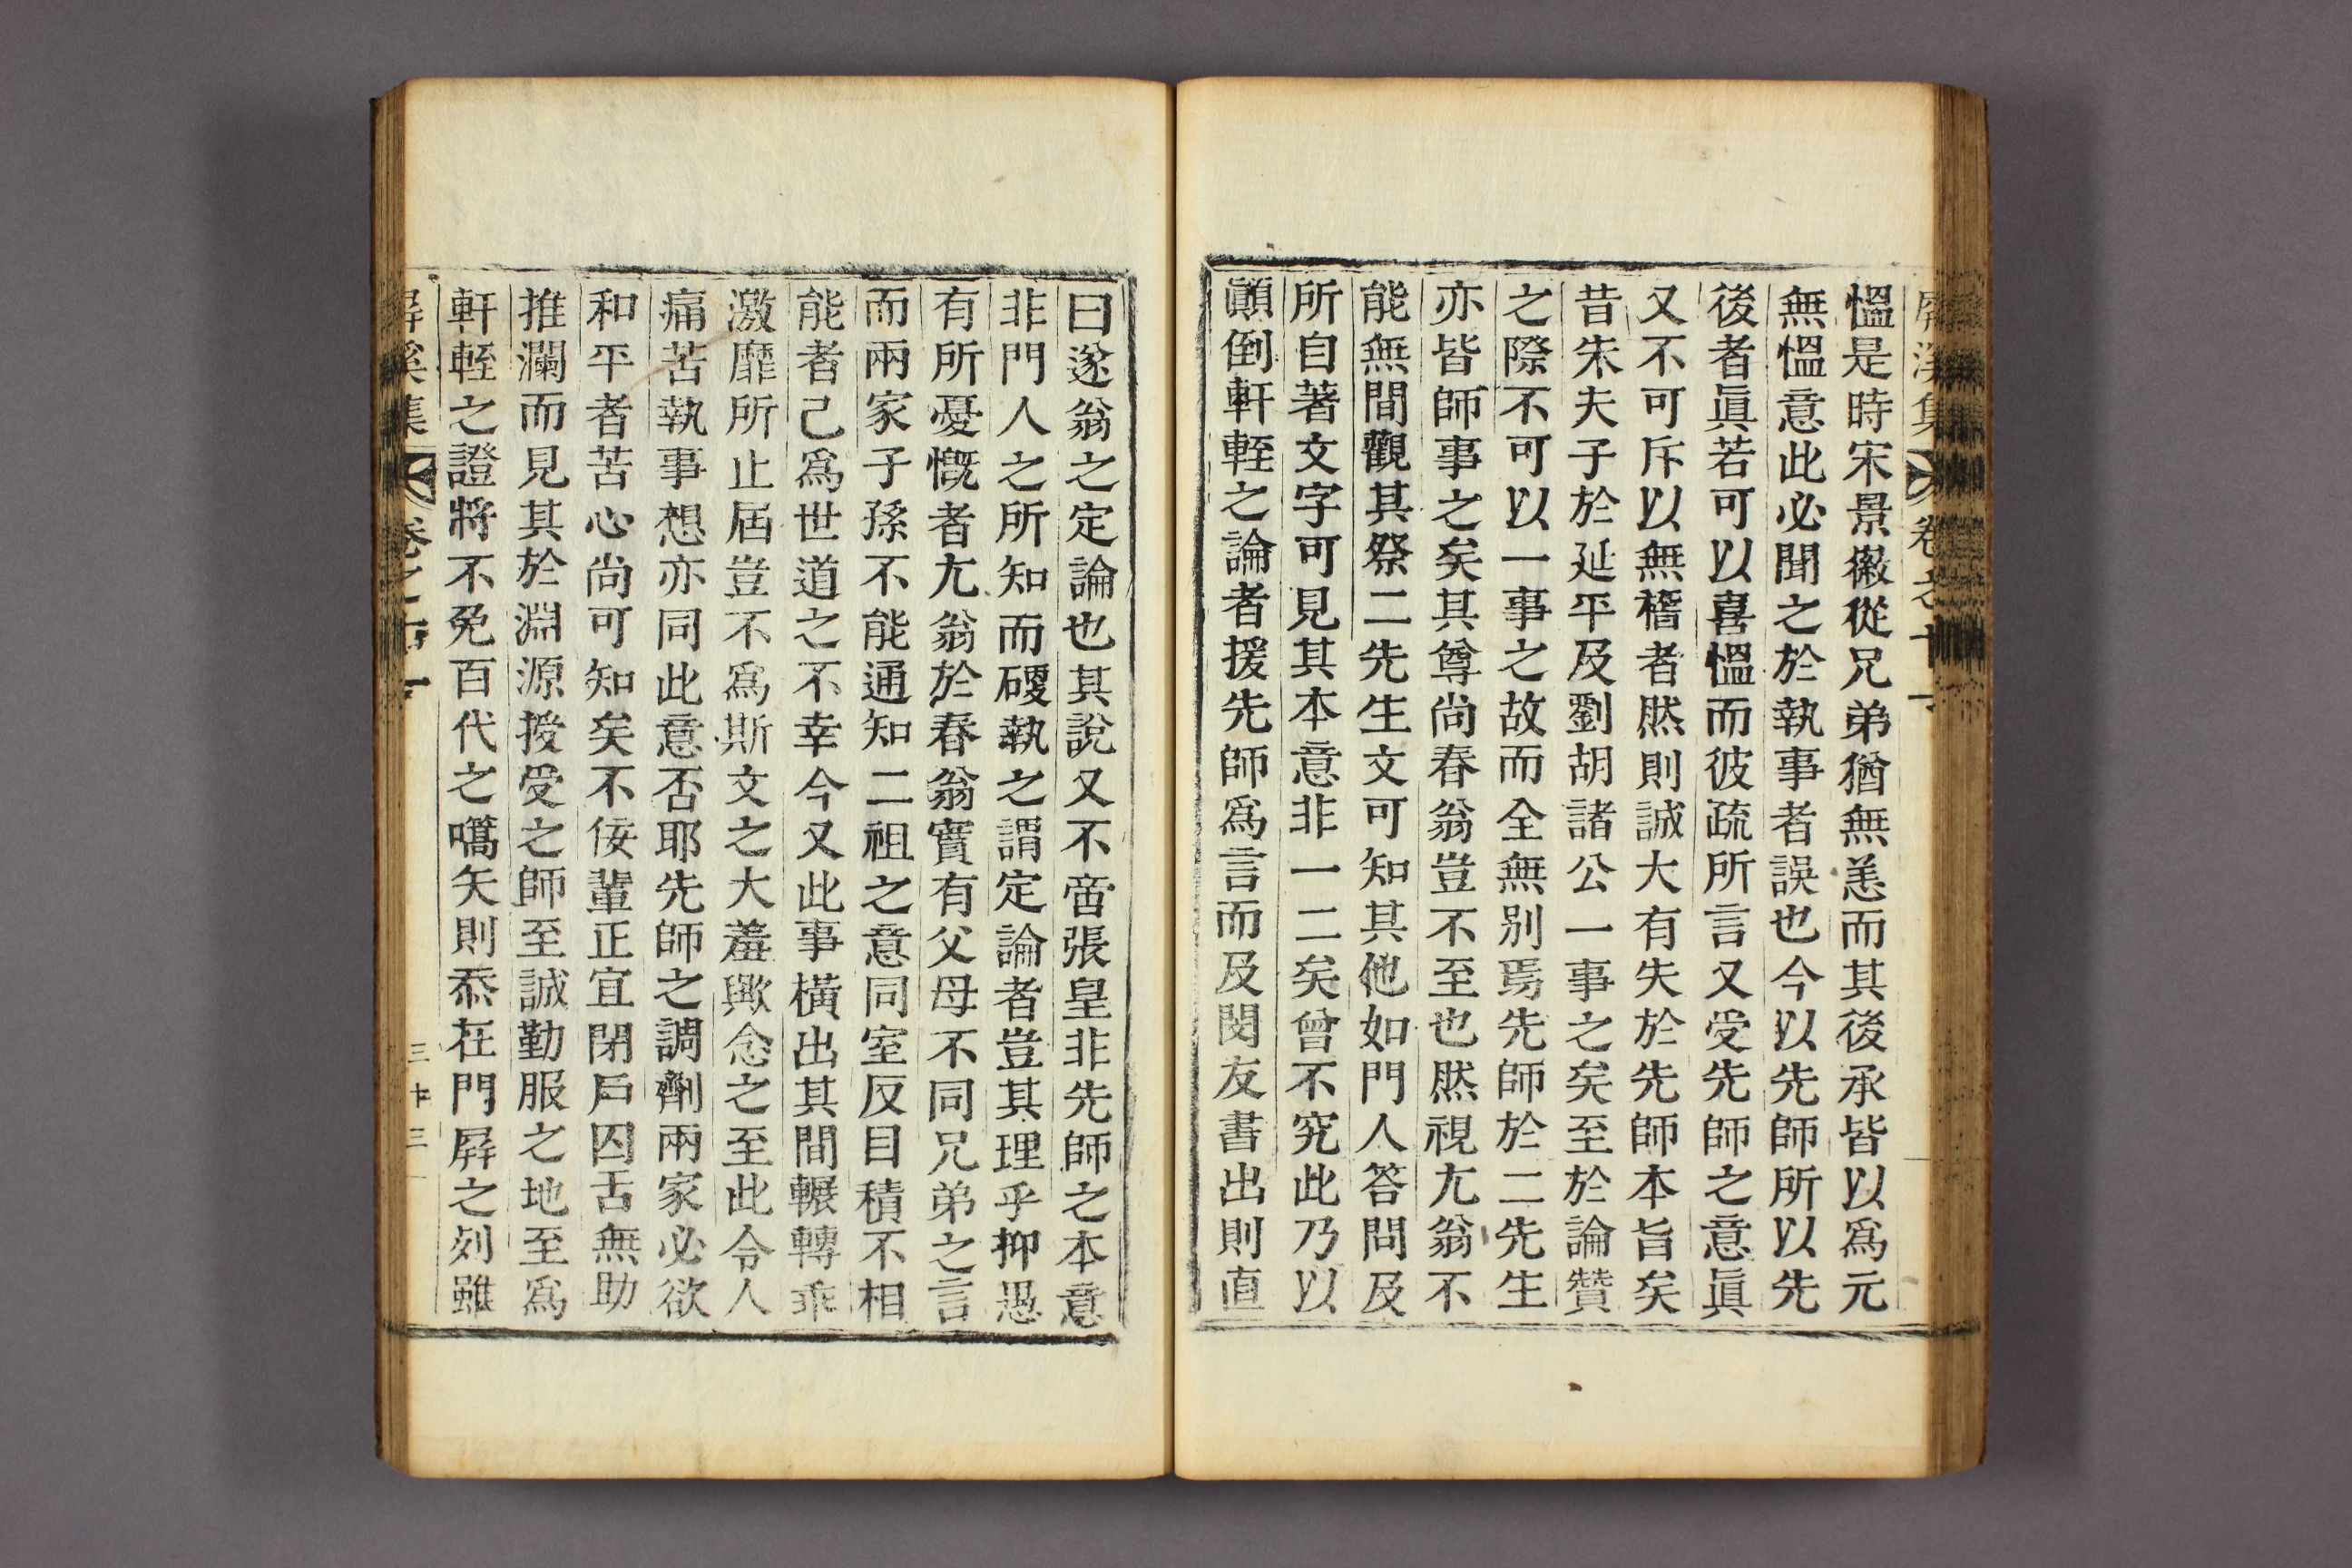 屛溪集 卷之十一
慍是時宋景徽從兄弟猶無恙而其後承皆以爲元
無慍意此必聞之於執事者誤也今以先師所以先
後者眞若可以喜慍而彼疏所言又受先師之意眞
又不可斥以無稽者然則誠大有失於先師本旨矣
昔朱夫子於延平及劉胡諸公一事之矣至於論贊
之際不可以一事之故而全無別焉先師於二先生
亦皆師事之矣其尊尚春翁豈不至也然視尤翁不
能無間觀其祭二先生文可知其他如門人答問及
所自著文字可見其本意非一二矣曾不究此乃以
顚倒軒輊之論者援先師爲言而及閔友書出則直
曰遂翁之定論也其說又不啻張皇非先師之本意
非門人之所知而硬執之謂定論者豈其理乎抑愚
有所憂慨者尤翁於春翁實有父母不同兄弟之言
而兩家子孫不能通知二祖之意同室反目積不相
能者己爲世道之不幸今又此事橫出其間輾轉乖
激靡所止屆豈不爲斯文之大羞歟念之至此令人
痛苦執事想亦同此意否耶先師之調劑兩家必欲
和平者苦心尚可知矣不佞輩正宜閉戶囚舌無助
推瀾而見其於淵源授受之師至誠勤服之地至爲
軒輊之證將不免百代之嚆矢則忝在門屛之列雖
屛溪集 卷之十一 三十三